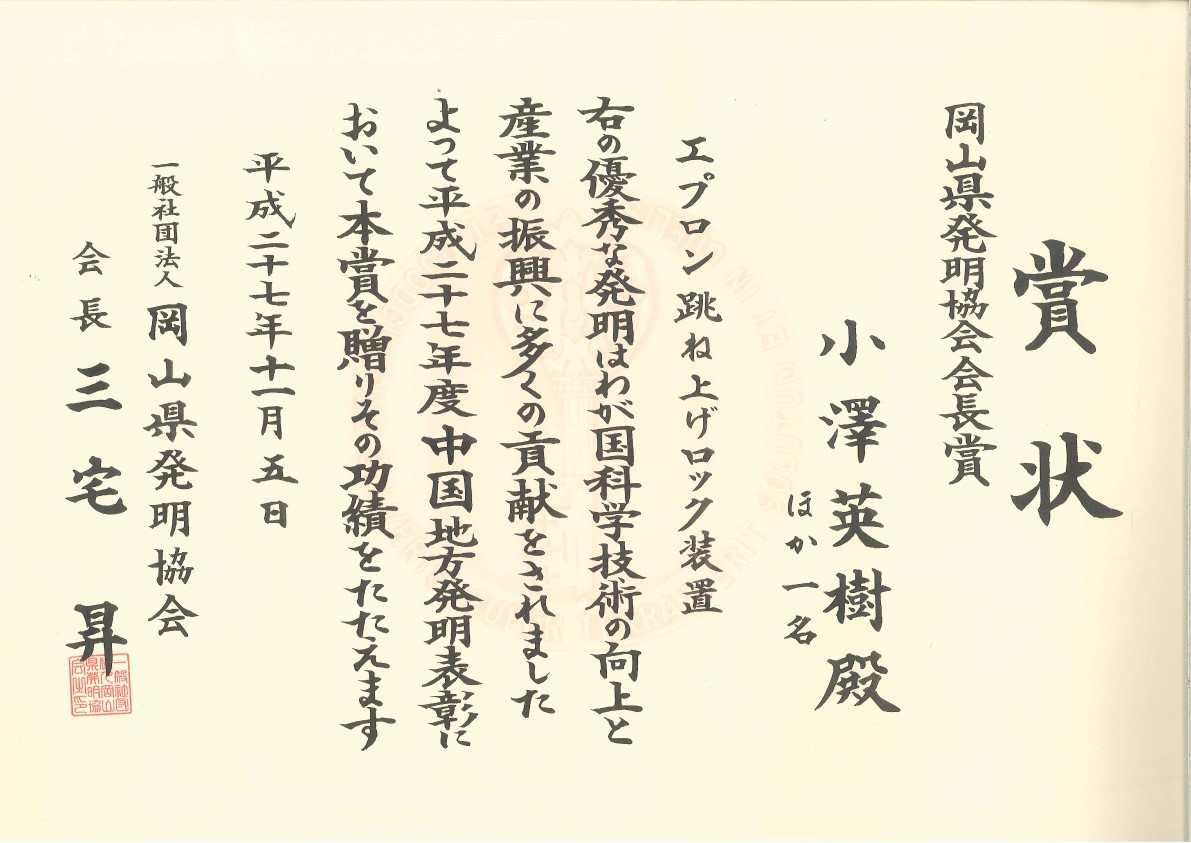 賞状
岡山県発明協会会長賞
小澤英樹殿
ほか一名
エプロン跳ね上げロック装置
右の優秀な発明はわが国科学技術の向上と
産業の振興に多くの貢献をされました
よって平成二十七年度中国地方発明表彰に
おいて本賞を贈りその功績をたたえます
平成二十七年十一月五日
一般社団法人 岡山県発明協会
会長 三宅昇